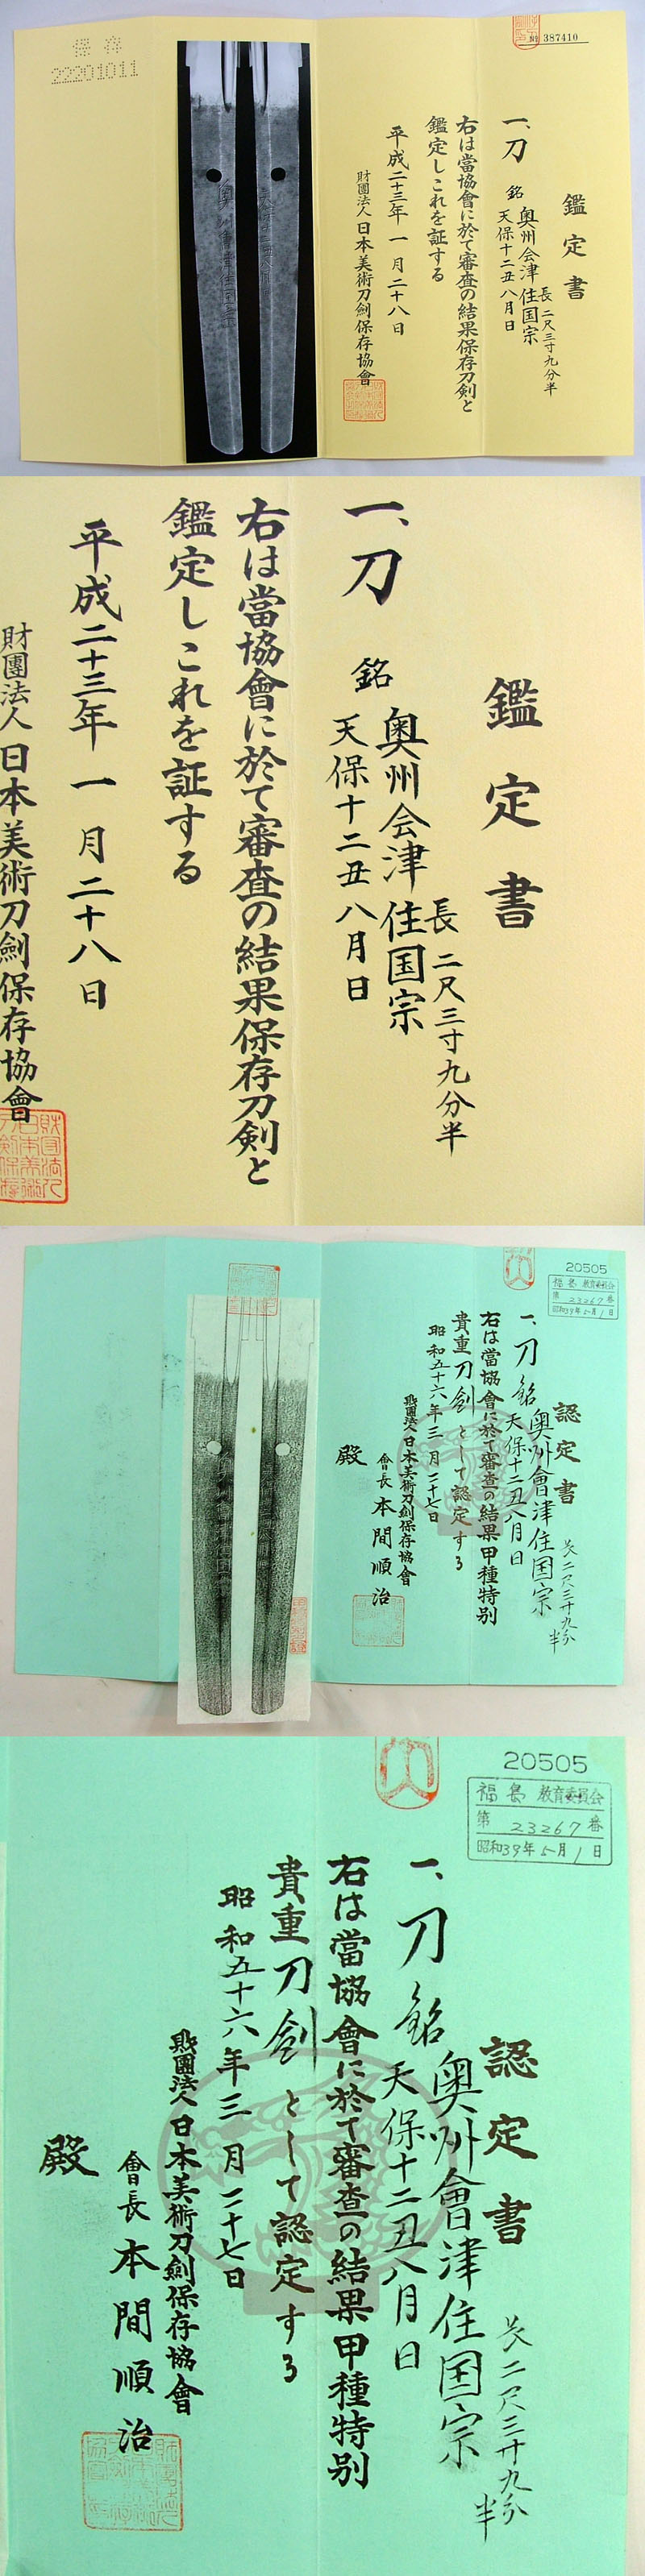 保存
22201011
No 387410
鑑定書
一、刀 銘 奥州会津住国宗
天保十二丑八月日
長二尺三寸九分半
右は當協會に於て審査の結果保存刀剣と
鑑定しこれを証する
平成二十三年一月二十八日
財團法人日本美術刀劍保存協會
鑑定書
一、刀 銘 奥州会津住国宗
天保十二丑八月日
長二尺三寸九分半
右は當協會に於て審査の結果保存刀剣と
鑑定しこれを証する
平成二十三年一月二十八日
財團法人日本美術刀劍保存協會
20505
福島教育委員会
第23267番
昭和39年5月1日
認定書
一、刀 銘 奥州會津住国宗
天保十二丑八月日
長二尺三寸九分半
右は當協會に於て審査の結果甲種特別
貴重刀剣として認定する
昭和五十六年三月二十七日
財團法人日本美術刀劍保存協會
會長本間順治
殿
20505
福島教育委員会
第23267番
昭和39年5月1日
認定書
一、刀 銘 奥州會津住国宗
天保十二丑八月日
長二尺三寸九分半
右は當協會に於て審査の結果甲種特別
貴重刀剣として認定する
昭和五十六年三月二十七日
財團法人日本美術刀劍保存協會
會長本間順治
殿